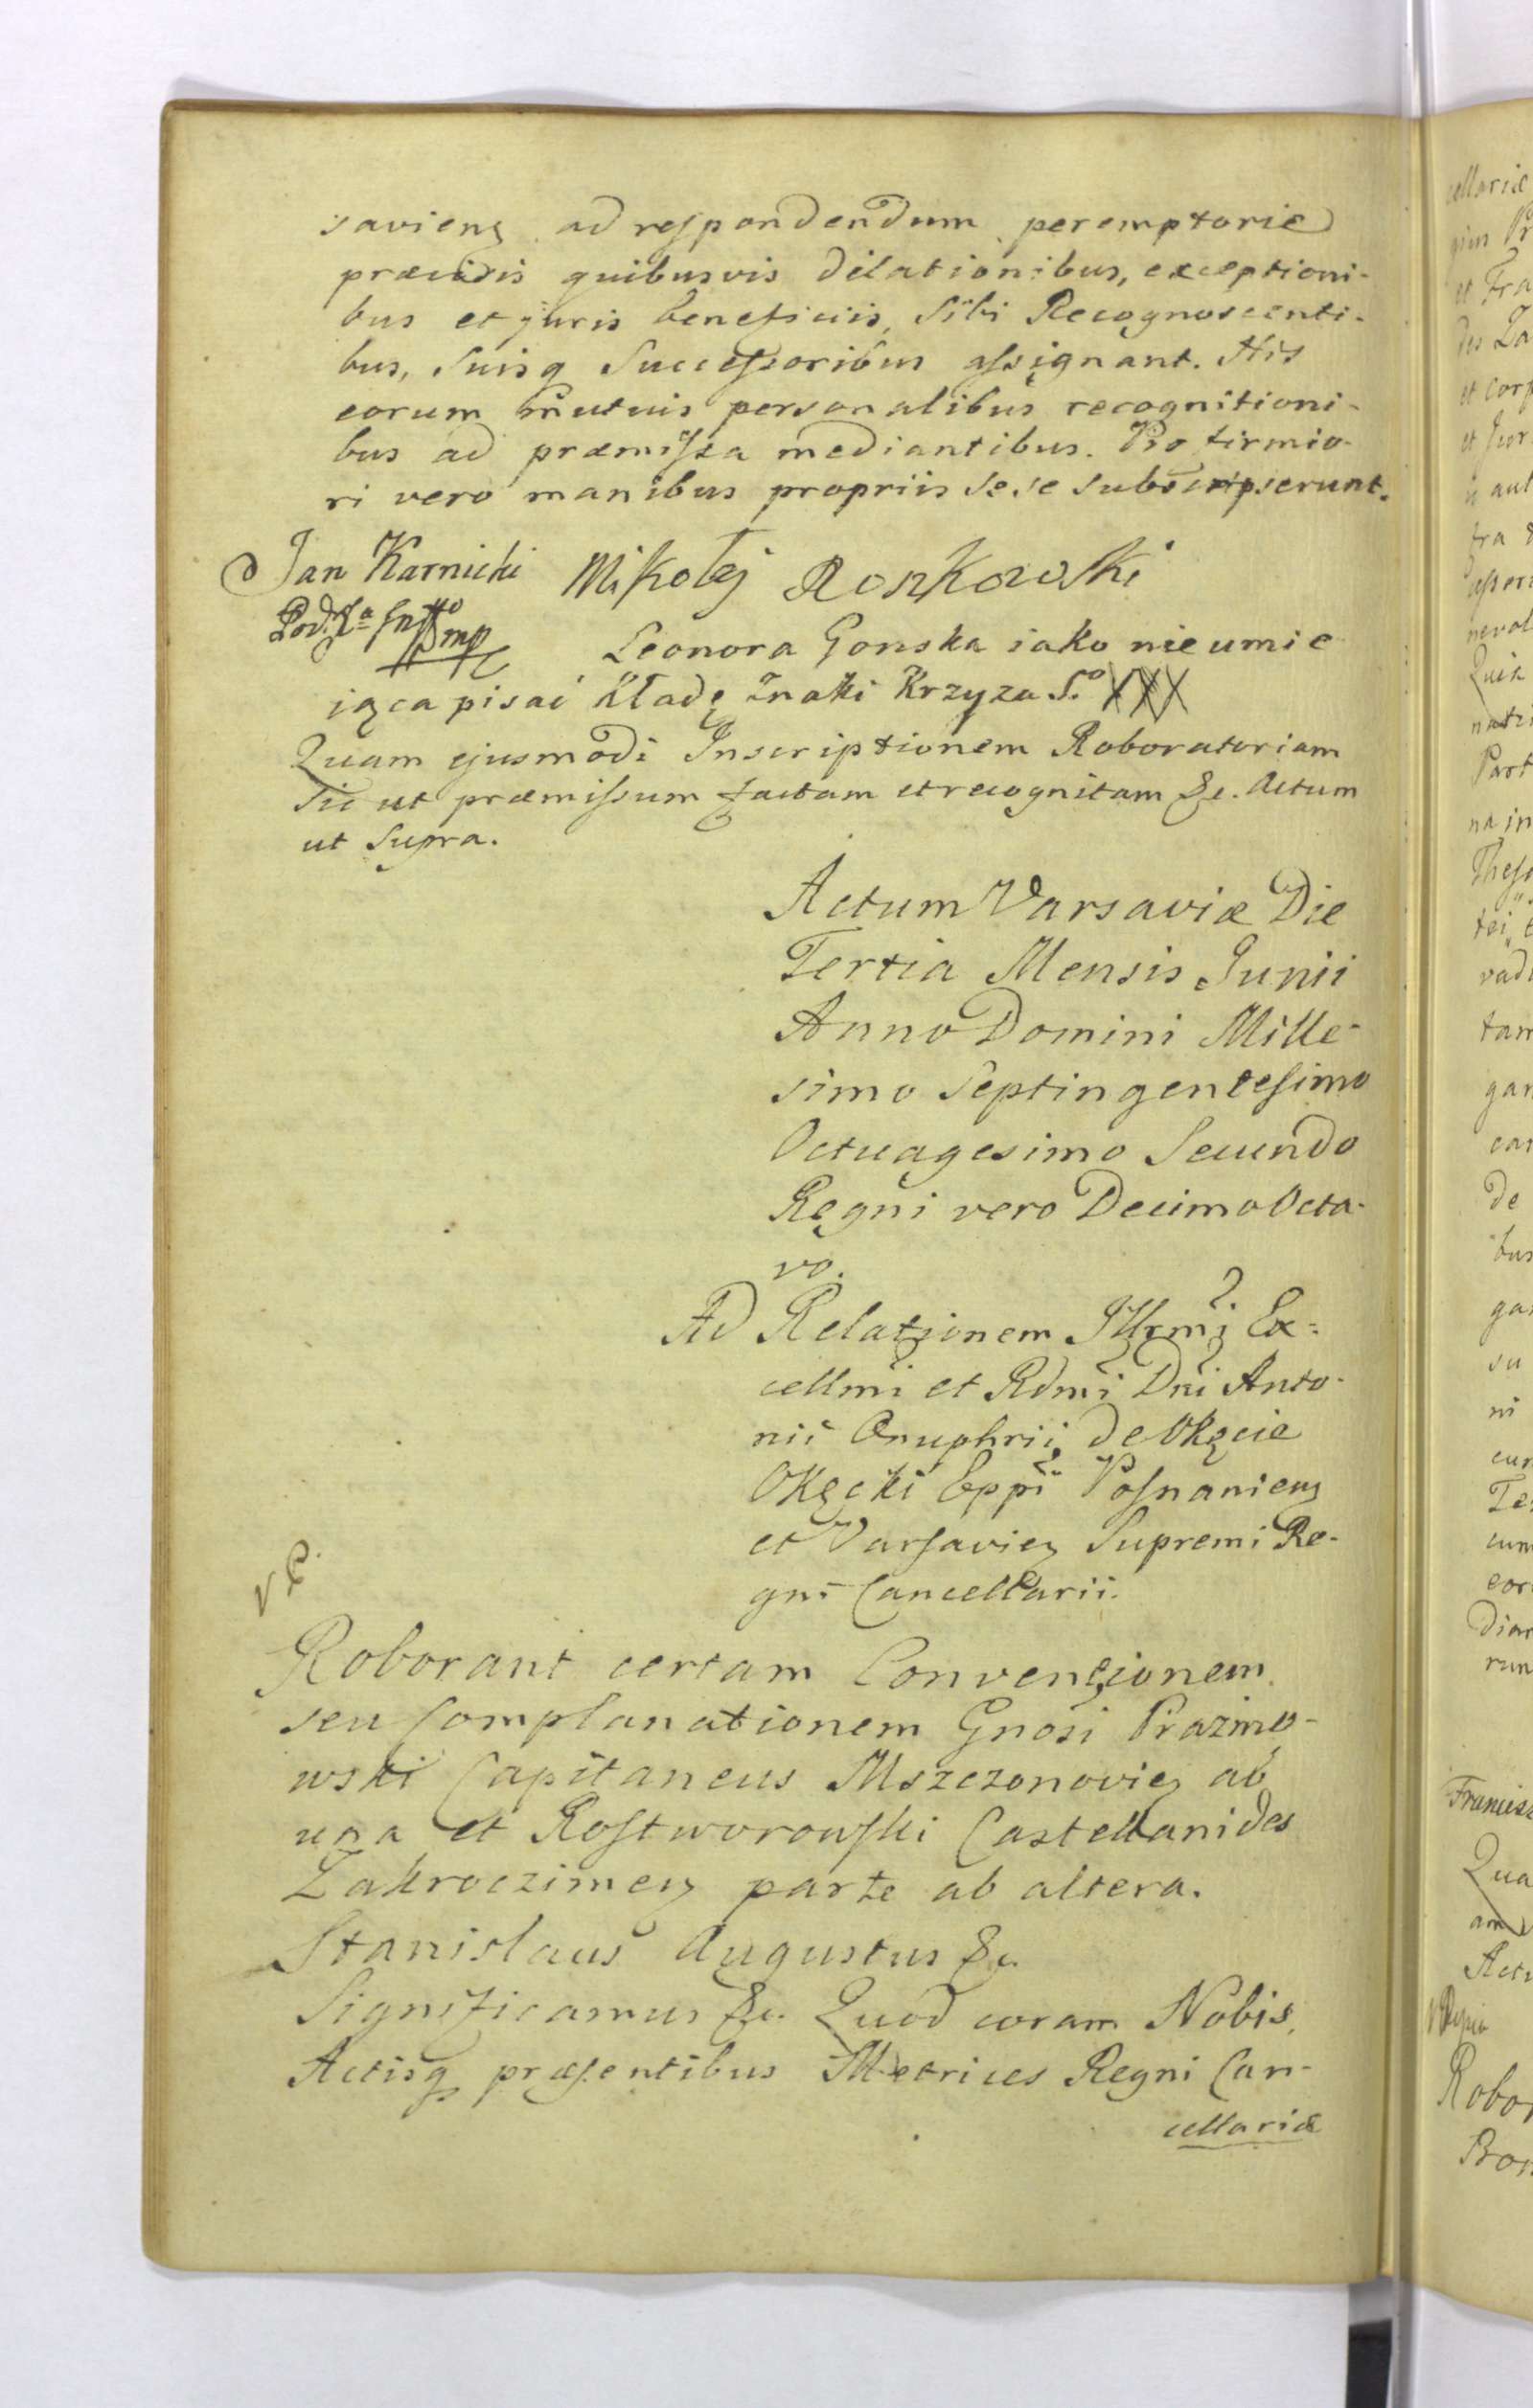 saviens ad respondendum peremptorie
præcisis quibusvis dilationibus, exceptioni-
bus et juris beneficiis, Sibi Recognoscenti-
bus, Suisq Successoribus assignant. His
eorum mutuis personalibus recognitioni-
bus ad præmissa mediantibus. Pro firmio-
ri vero manibus propriis sese subscripserunt.
Jan Karnicki Mikołaj Roszkowski
mp
Leonora Gonska iako nie umie
iąca pisać Kładę Znaki Krzyza S.º XXX
Quam ejusmodi Inscriptionem Roboratoriam
Sic ut præmissum factam et recognitam &c. Actum
ut Supra.
Actum Varsaviæ Die
Tertia Mensis Junii
Anno Domini Mille-
simo Septingentesimo
Octuagesimo Secundo
Regni vero Decimo Octa-
vo.
Ad Relationem Illrmi Ex=
cellmi et Rdmi Dni Anto-
nii Onuphrii de Okęcie
Okęcki Eppi Posnaniens
et Varsavien Supremi Re-
gni Cancellarii.
Roborant certam Convencionem
seu Complanationem Gnosi Prazmo-
wski Capitaneus Mszczonovien ab
una et Rostworowski Castellanides
Zakroczimen parte ab altera.
Stanislaus Augustus &c.
Significamus &c. Quod coram Nobis,
Actisq præsentibus Metrices Regni Can-
cellariæ